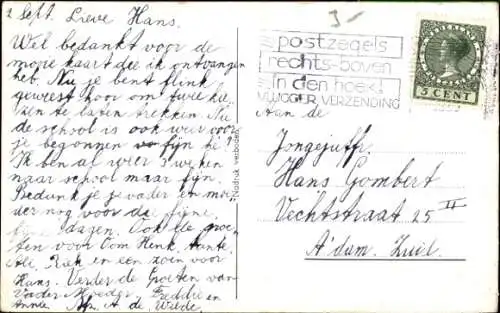 2 Sept. Lieve Hans.
Wel bedankt voor de
mooie kaart die ik ontvangen
heb. Nu je bent flink
geweest hoor om twee kie-
zen te laten trekken. Nu
de school is ook weer voor
je begonnen fijn hè?
Ik ben al weer 3 weken
naar school maar fijn.
Bedank je je vader en moe-
der nog voor de fijne
dagen. Ook de groe-
ten voor Oom Henk, tante
Ali, Riek en een zoen voor
Hans. Verder de Groeten van
Vader Moeder, Freddie en
Annie A. de Weerde.
Nadruk verboden
3-
postzegels
rechts-boven
in den hoek!
VLUGGER VERZENDING
NEDERLAND
5 CENT
Aan de
Jongejuffr.
Hans Gombert
Vechtstraat 25 II
A'dam. Zuid.